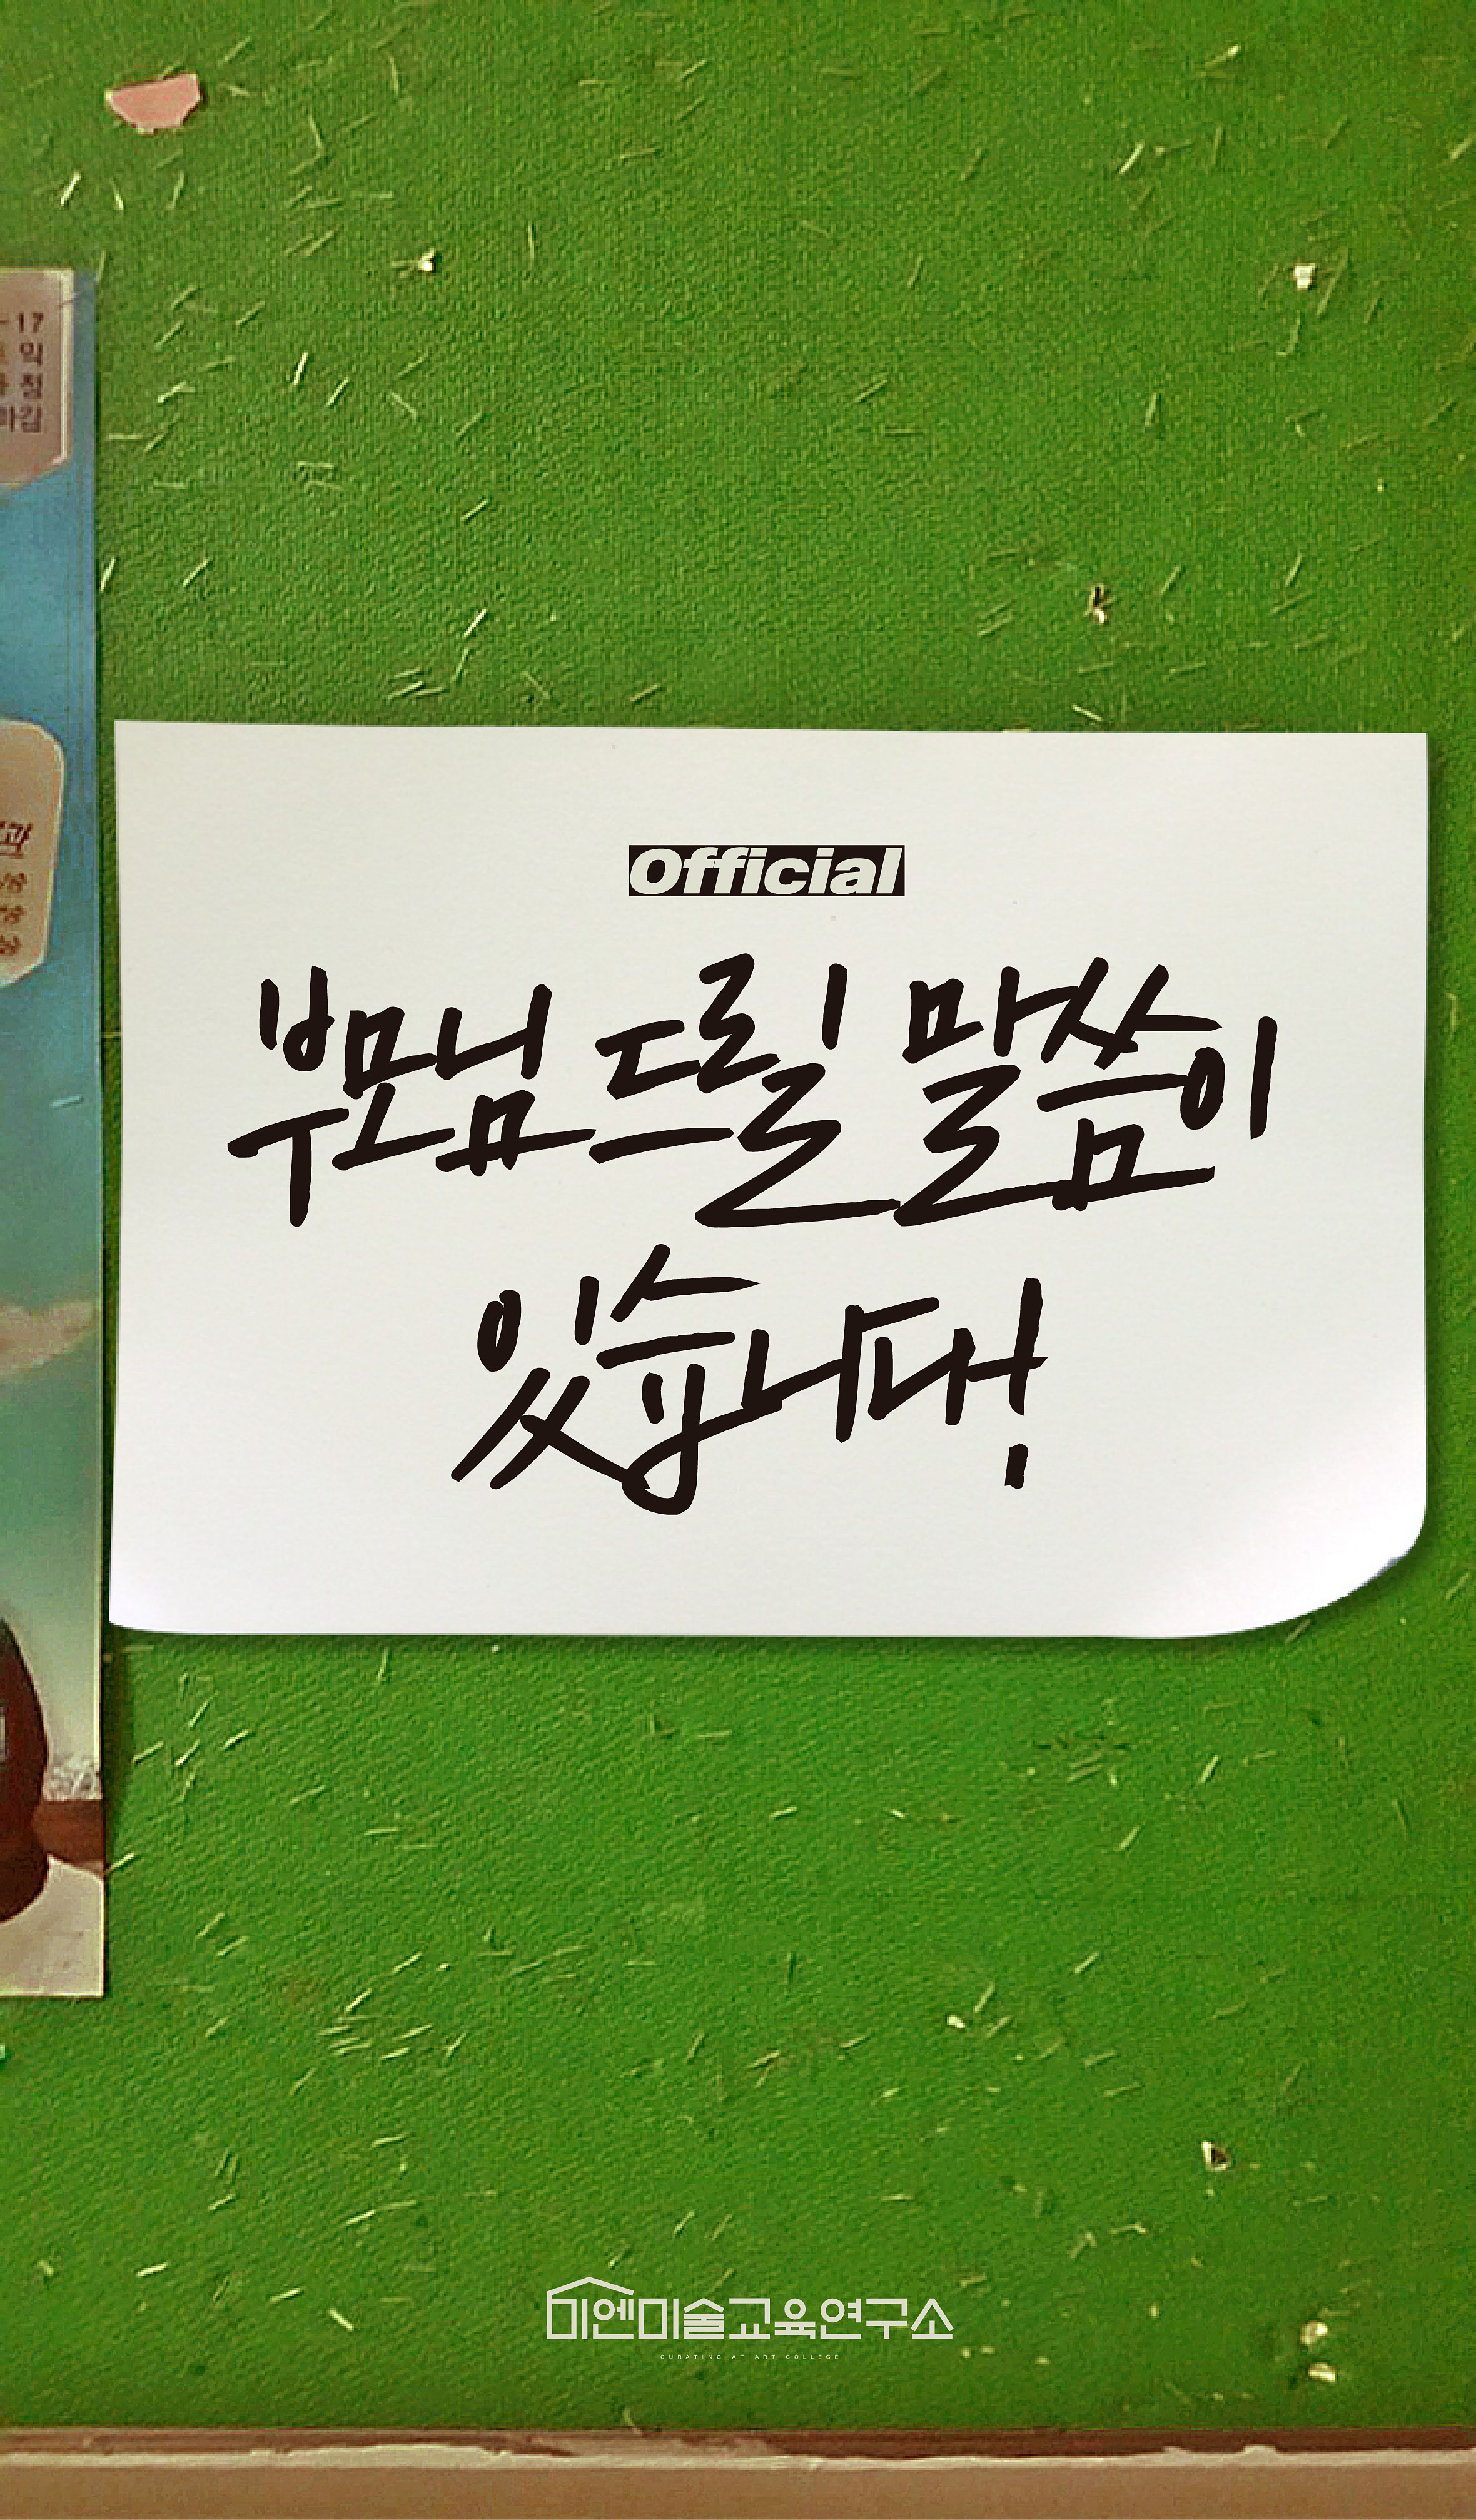 -17
익
정
화김
과
Official
부모님 드릴 말씀이
있습니다!
미엔미술교육연구소
CURATING AT ART COLLEGE